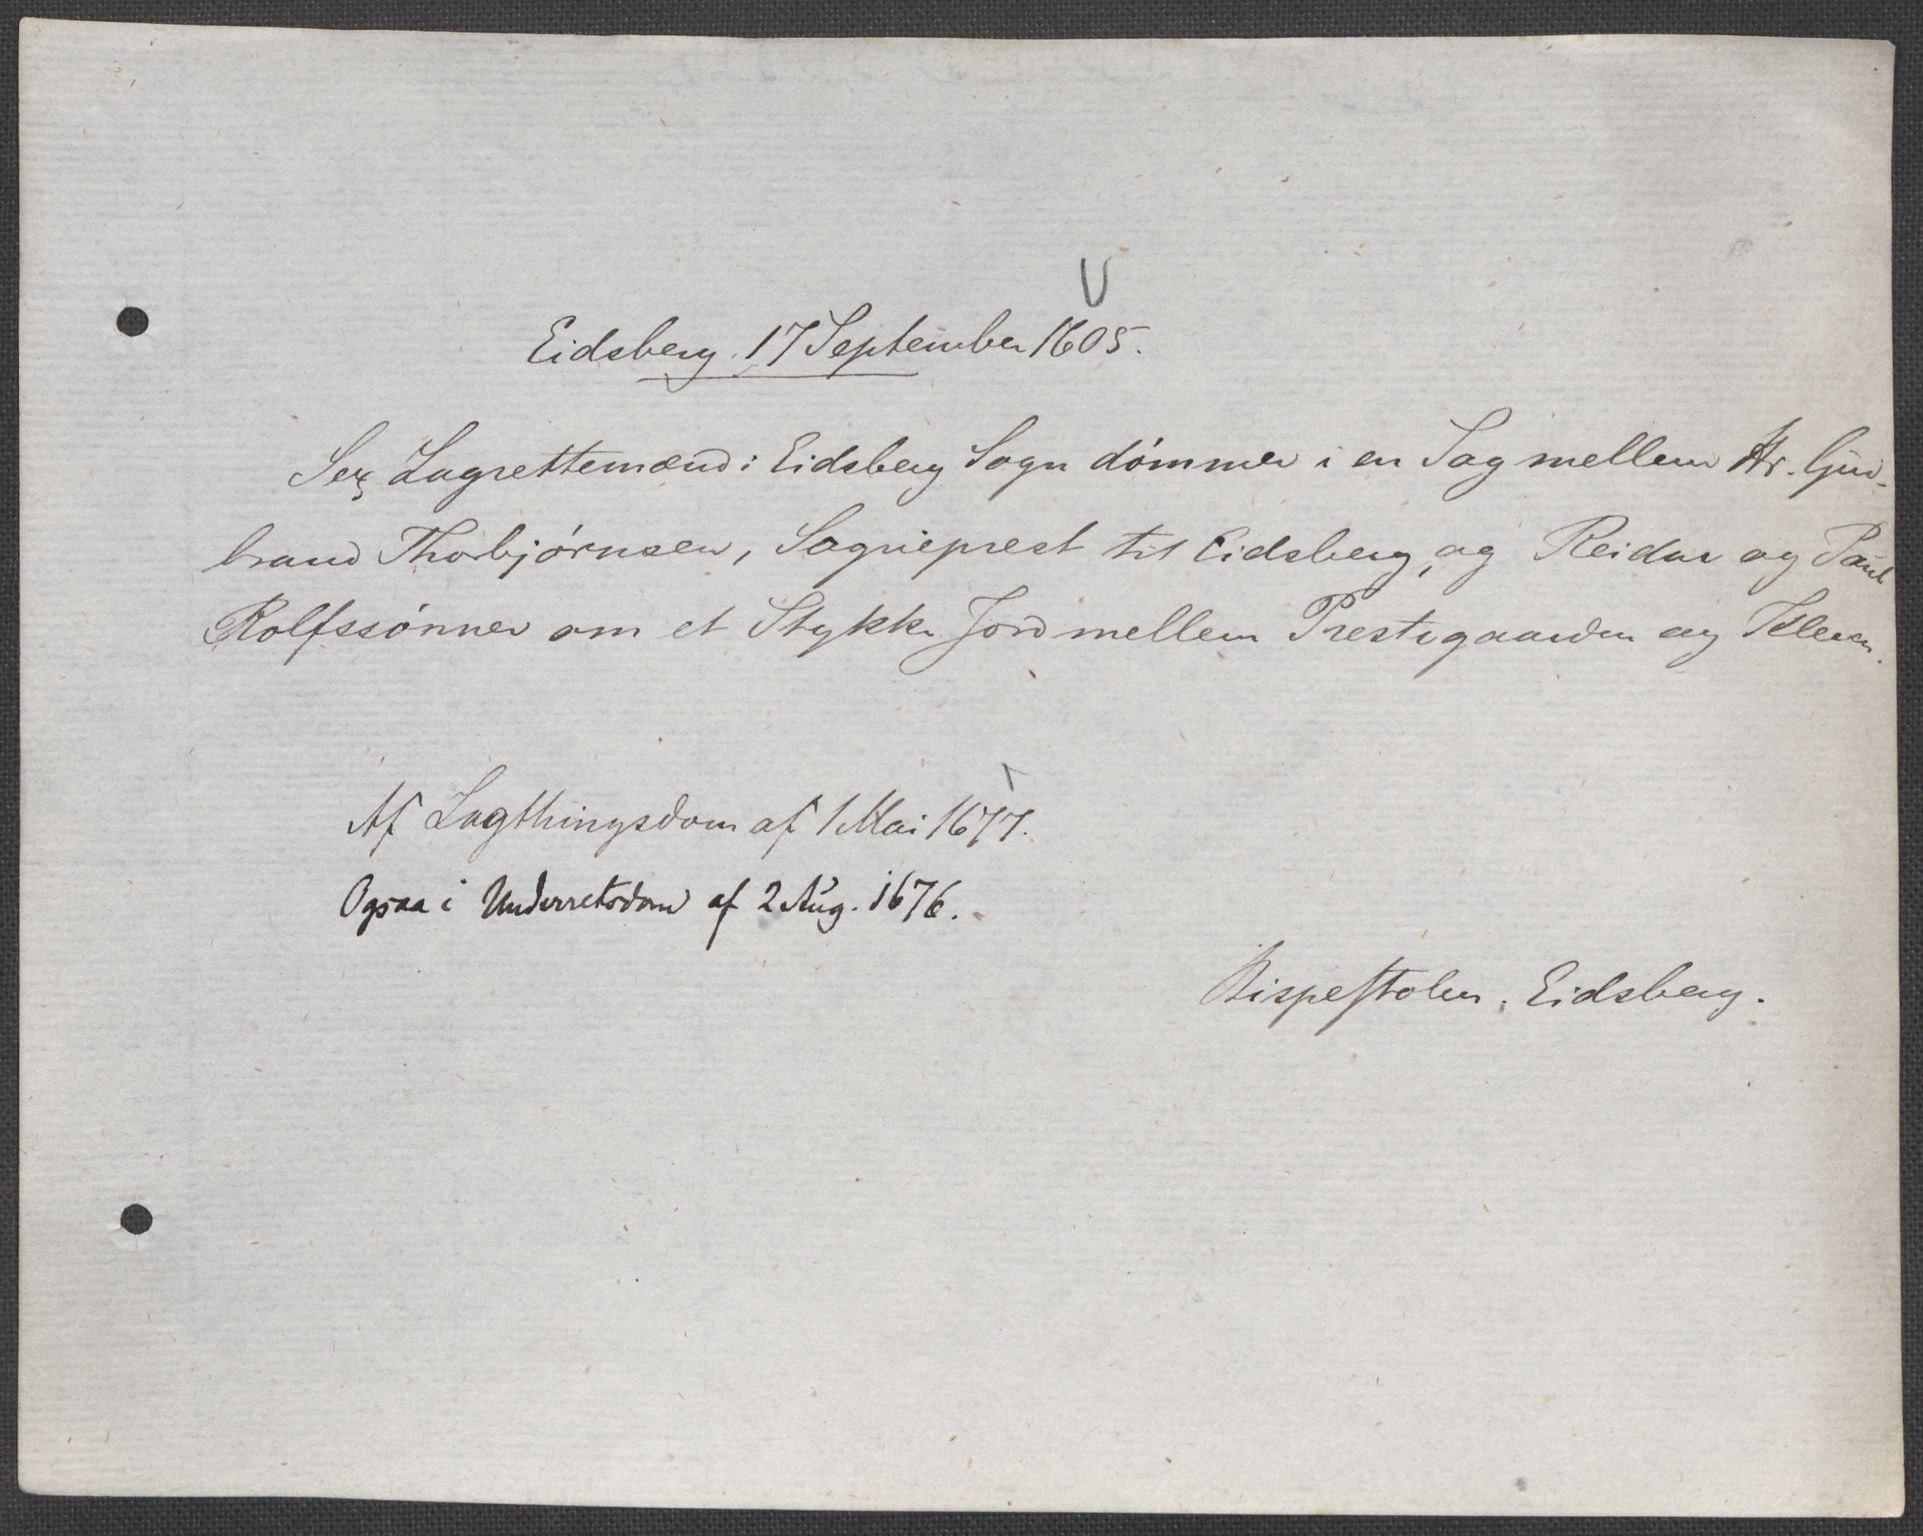 Eidsberg 17 September 1605.
Sex Lagrettemænd i Eidsberg Sogn dömmer i en Sag mellem Hr. Gud-
brand Thorbjörnsen, Sogneprest til Eidsberg, og Reidar og Paul
Rolfssönner om et Stykke Jord mellem Prestegaarden og
Af Lagthingsdom af 1 Mai 1677.
Ogsaa i Underretsdom af 2 Aug. 1676.
Bispestolen. Eidsberg.